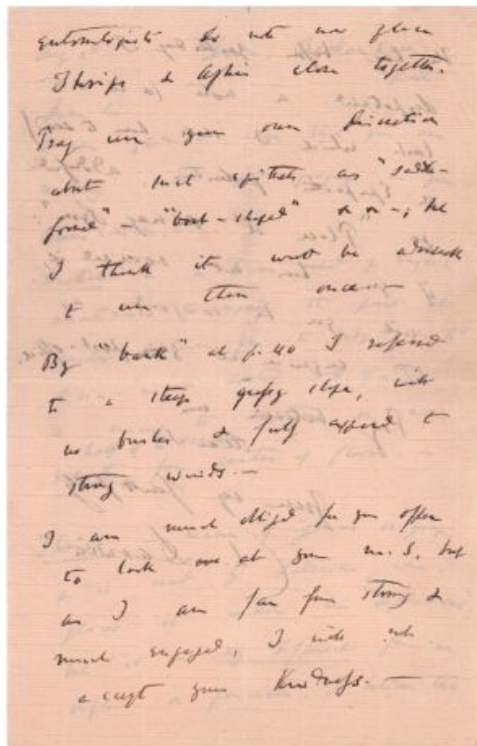 entomologists do not now place
Thrips & Aphis close together.
Pray use your own discretion
about such epithets as "saddle-
formed" "boat-shaped" &c &c —; but
I think it would be advisable
to use them once.
By "bank" at p. 40 I referred
to a steep grassy slope, with
no bushes & fully exposed to
strong winds.—
I am much obliged for your offer
to look over at your M.S. but
as I am far from strong &
much engaged, I will not
accept your kindness.—